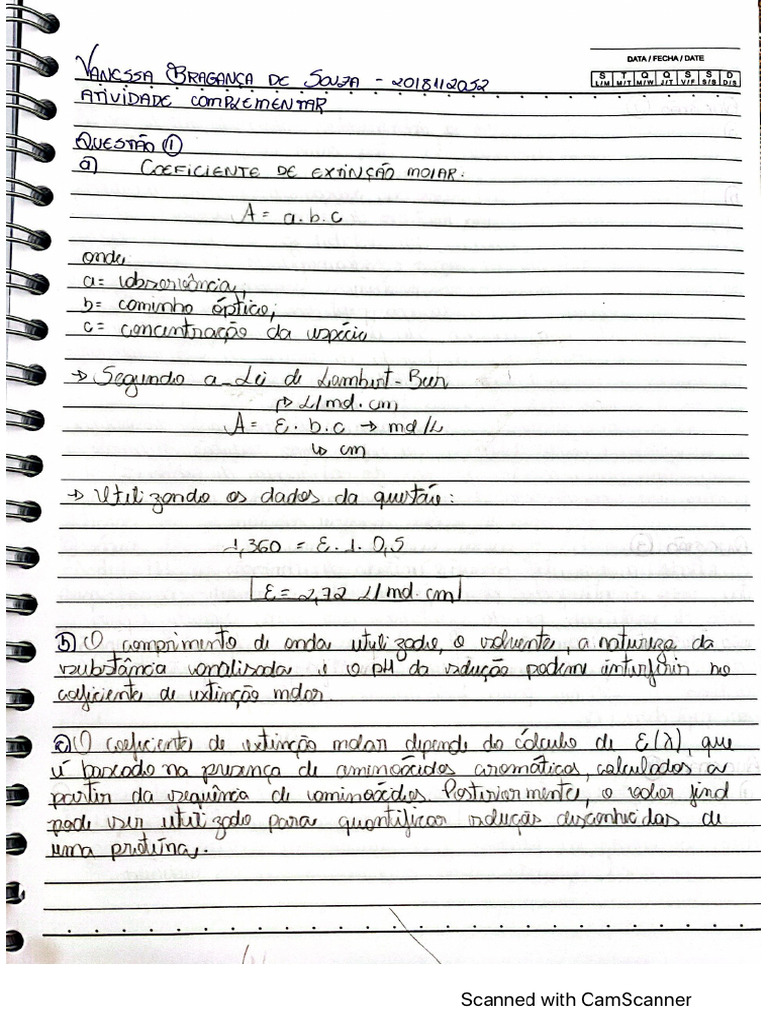 DATA / FECHA / DATE
S T Q Q S S D
L/M M/T M/W J/T V/F S/S D/S
VANESSA BRAGANÇA DE SOUZA - 2018112052
ATIVIDADE COMPLEMENTAR
QUESTÃO 1
a) COEFICIENTE DE EXTINÇÃO MOLAR:
A = a.b.c
onde
a = absorvância;
b = caminho óptico;
c = concentração da espécie
→ Segundo a Lei de Lambert-Beer
↱ L/mol.cm
A = ε.b.c → mol/L
↳ cm
→ Utilizando os dados da questão:
1,360 = ε.1.0,5
ε = 2,72 L/mol.cm
b) O comprimento de onda utilizado, o solvente, a natureza da
substância analisada e o pH da solução podem interferir no
coeficiente de extinção molar.
c) O coeficiente de extinção molar depende do cálculo de ε(λ), que
é baseado na presença de aminoácidos aromáticos, calculados a
partir da sequência de aminoácidos. Posteriormente, o valor final
pode ser utilizado para quantificar soluções desconhecidas de
uma proteína.
Scanned with CamScanner